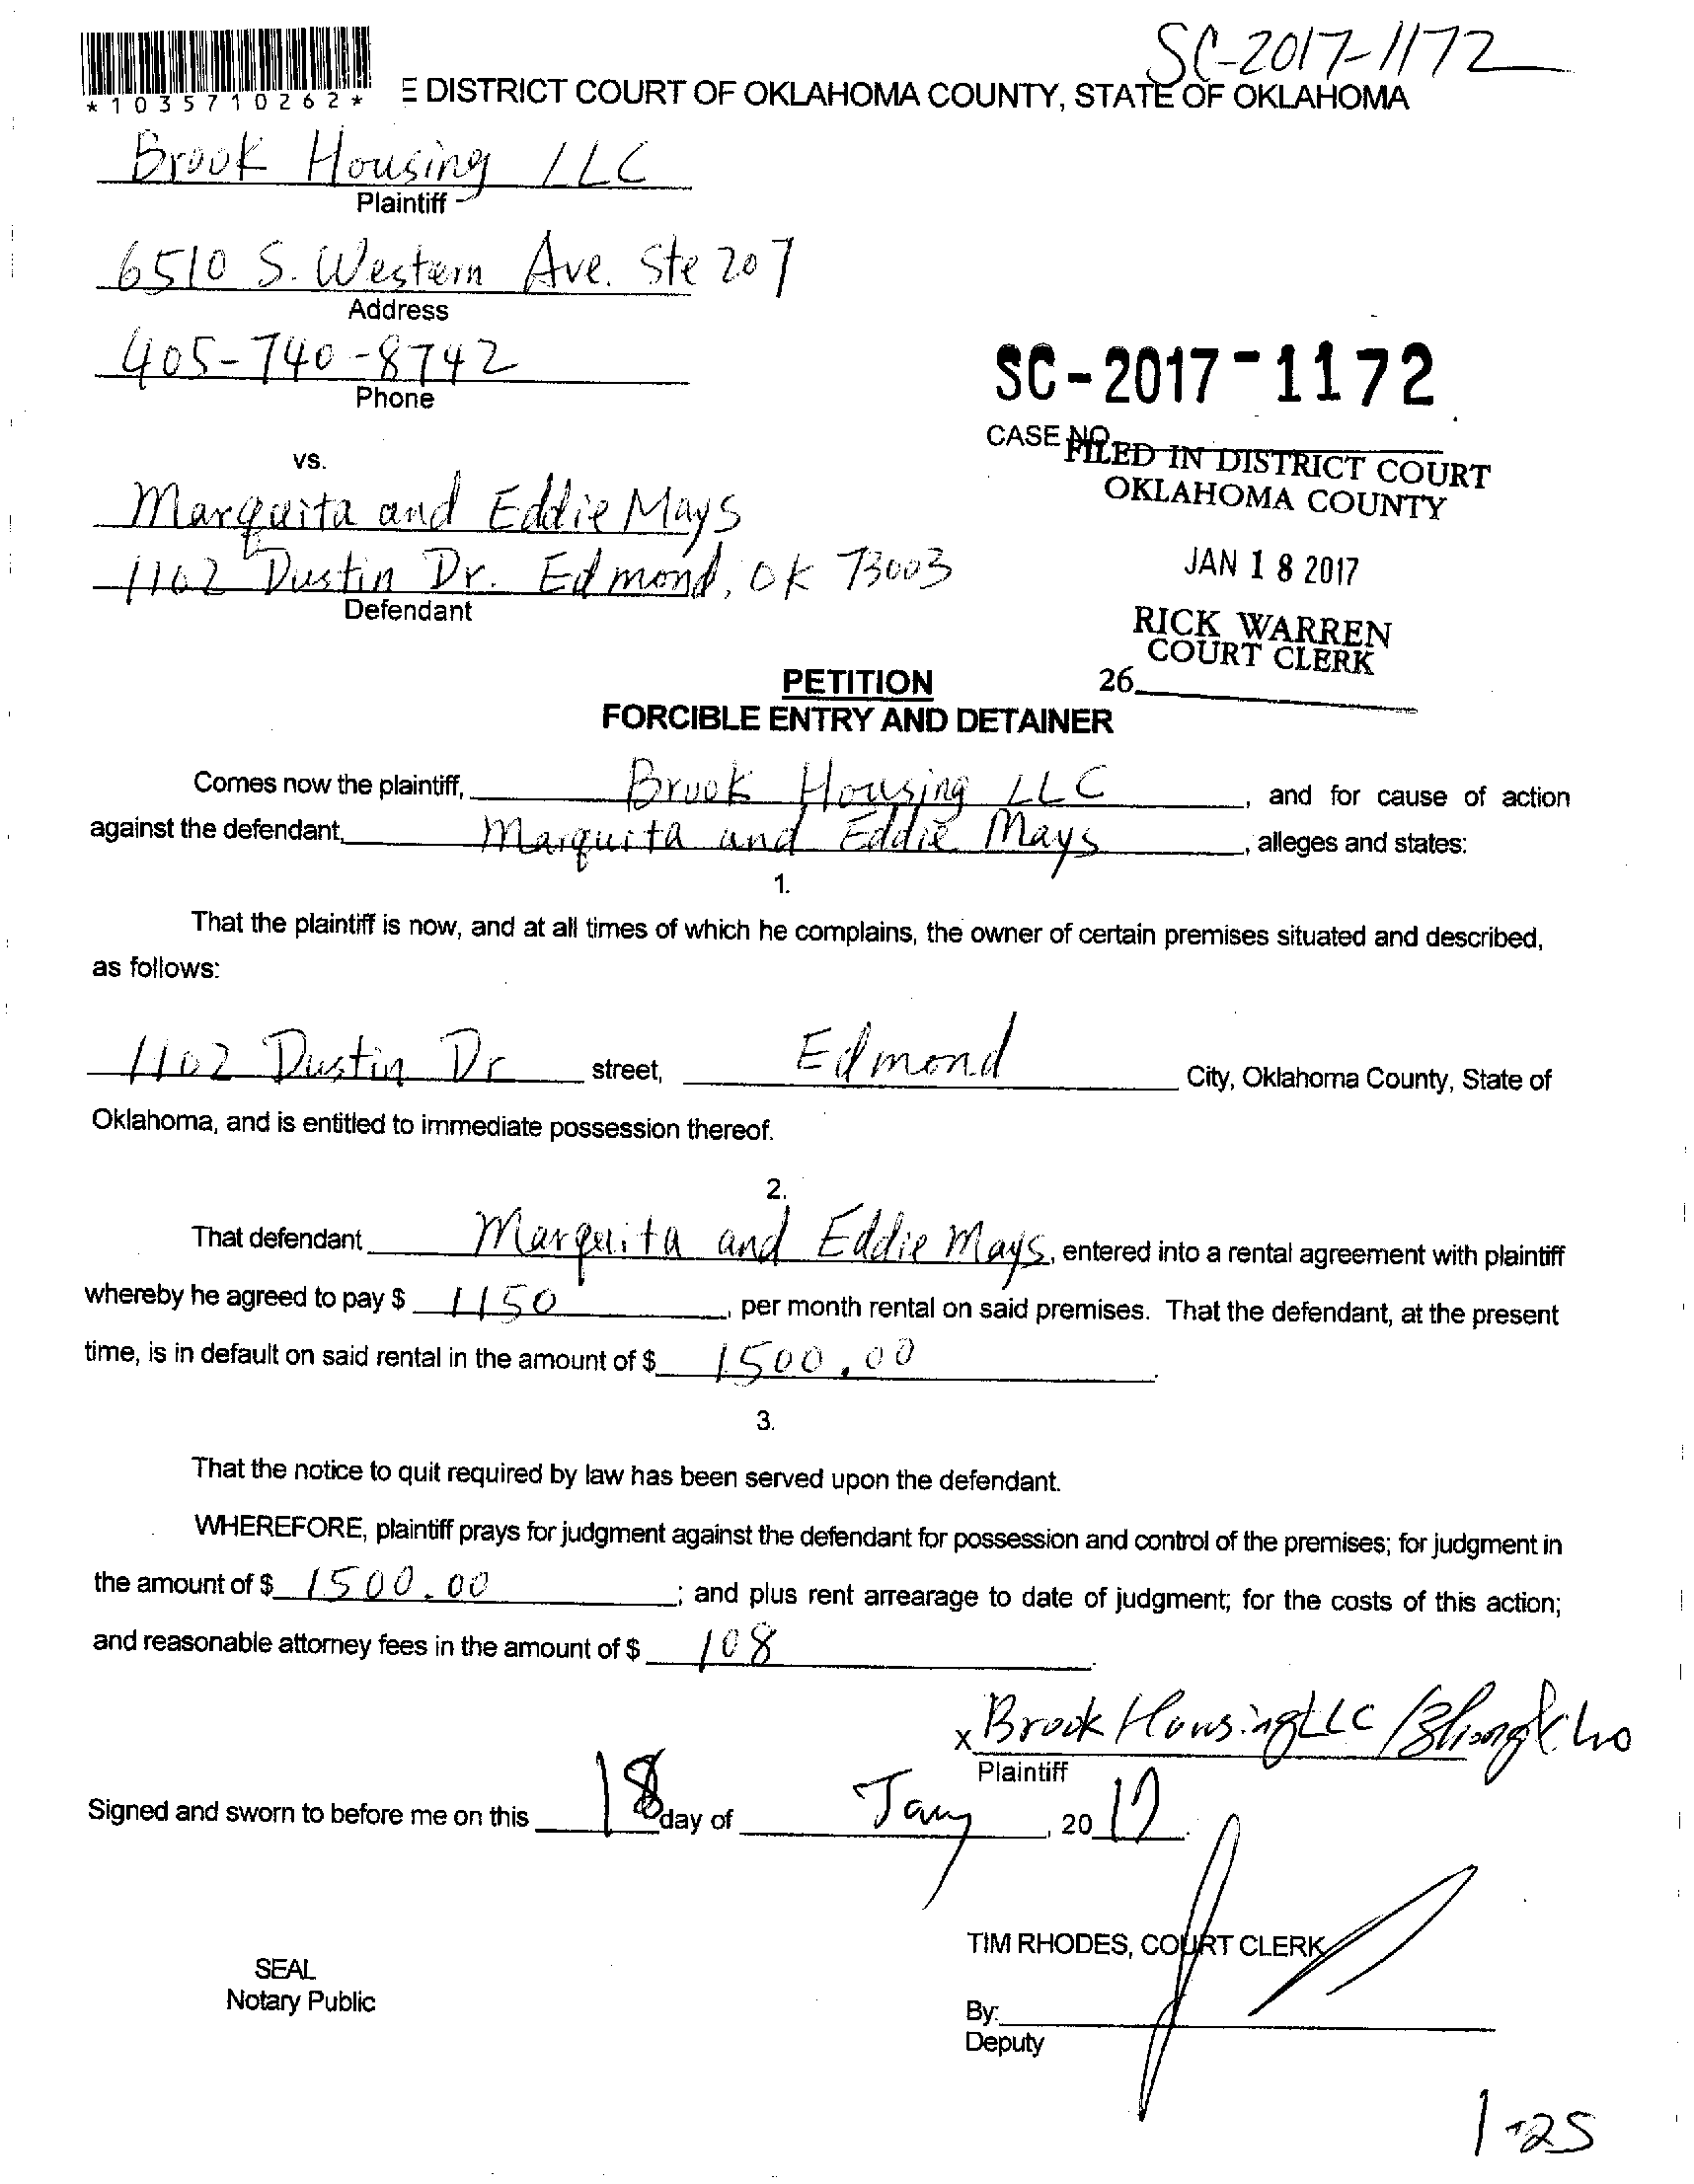 SC-2017-1172
*1035710262*
E DISTRICT COURT OF OKLAHOMA COUNTY, STATE OF OKLAHOMA
Brook Housing LLC
Plaintiff
6510 S. Western Ave. Ste 207
Address
405-740-8742
Phone
SC-2017-1172
CASE NO.
FILED IN DISTRICT COURT
OKLAHOMA COUNTY
vs.
Marquita and Eddie Mays
1102 Dustin Dr. Edmond, OK 73003
Defendant
JAN 18 2017
RICK WARREN
COURT CLERK
26
PETITION
FORCIBLE ENTRY AND DETAINER
Comes now the plaintiff, Brook Housing LLC, and for cause of action
against the defendant, Marquita and Eddie Mays, alleges and states:
1.
That the plaintiff is now, and at all times of which he complains, the owner of certain premises situated and described,
as follows:
1102 Dustin Dr street, Edmond City, Oklahoma County, State of
Oklahoma, and is entitled to immediate possession thereof.
2.
That defendant Marquita and Eddie Mays, entered into a rental agreement with plaintiff
whereby he agreed to pay $ 1150, per month rental on said premises. That the defendant, at the present
time, is in default on said rental in the amount of $ 1500.00.
3.
That the notice to quit required by law has been served upon the defendant.
WHEREFORE, plaintiff prays for judgment against the defendant for possession and control of the premises; for judgment in
the amount of $ 1500.00; and plus rent arrearage to date of judgment; for the costs of this action;
and reasonable attorney fees in the amount of $ 108.
x Brook Housing LLC /
Plaintiff
Signed and sworn to before me on this 18 day of Jany, 2017.
TIM RHODES, COURT CLERK
SEAL
Notary Public
By:
Deputy
1-25